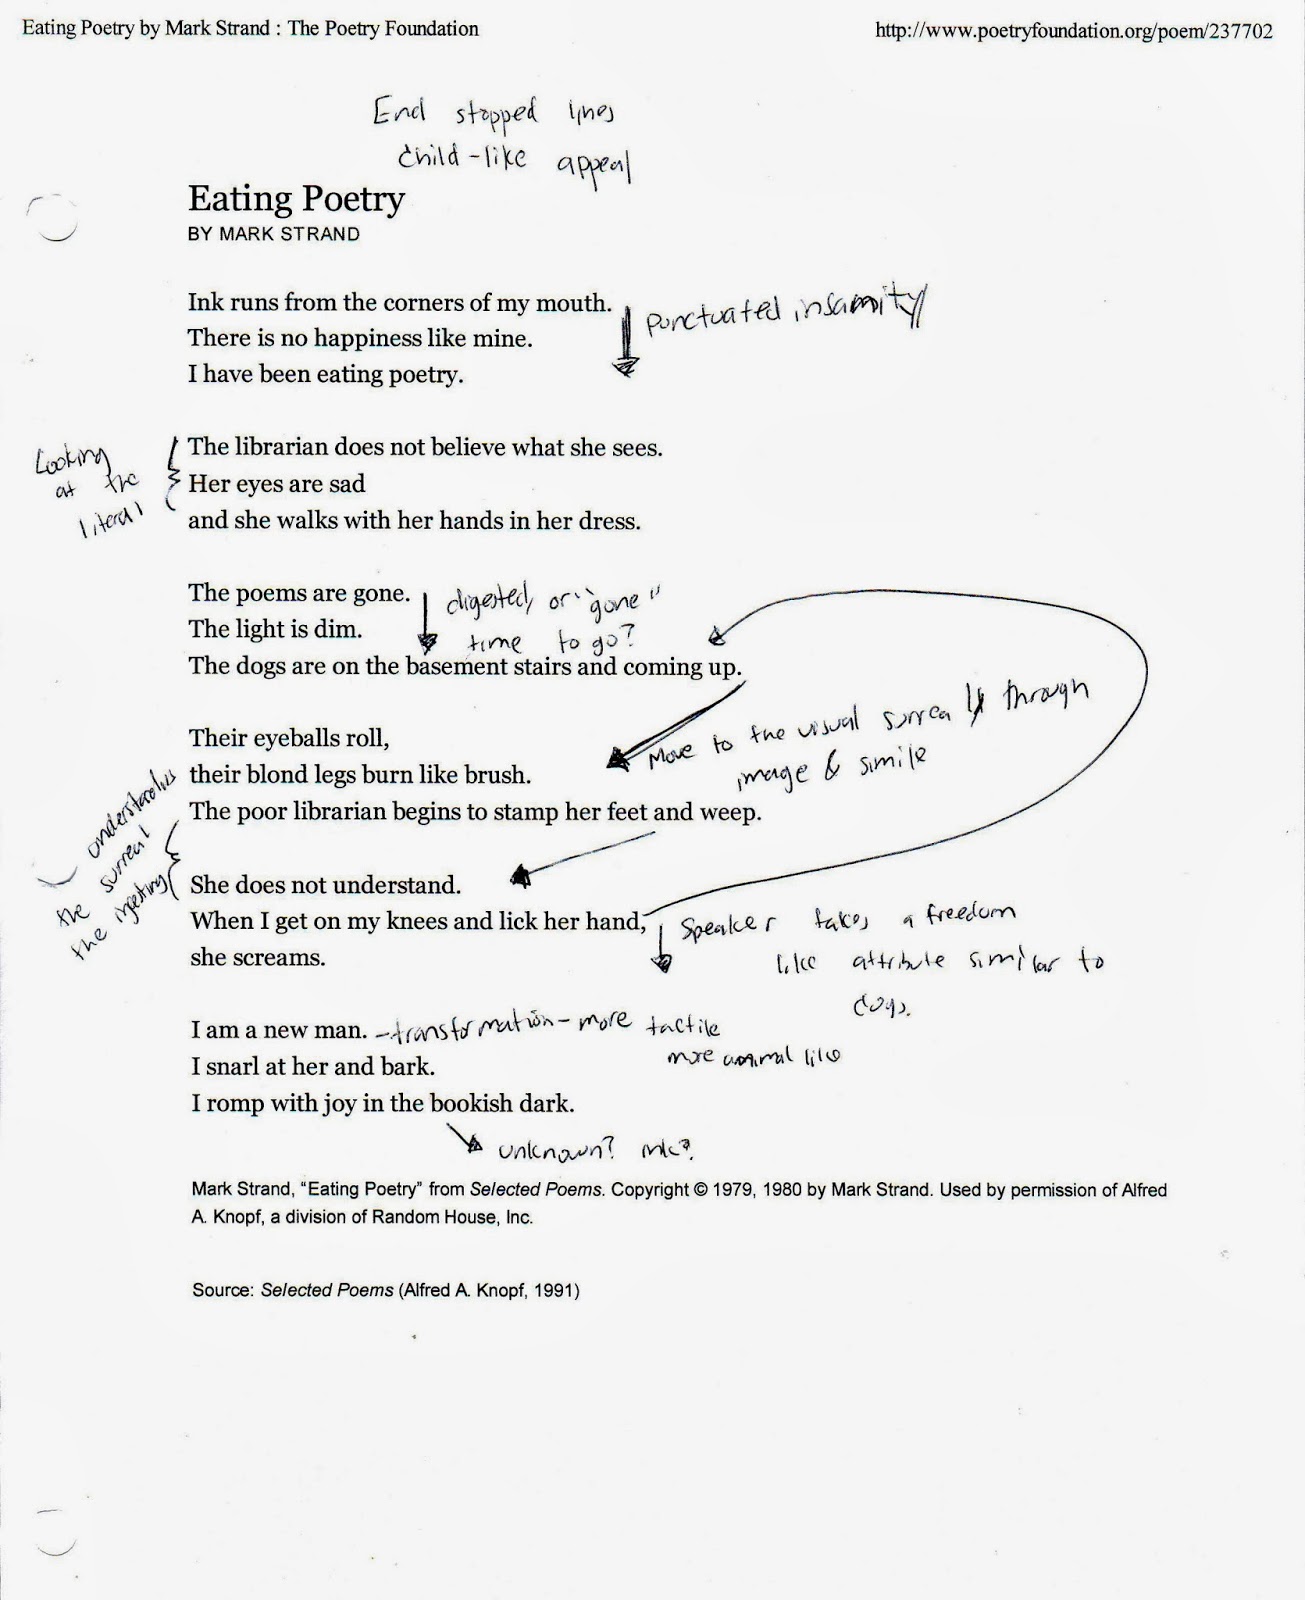 Eating Poetry by Mark Strand : The Poetry Foundation
http://www.poetryfoundation.org/poem/237702
End stopped lines
child-like appeal
Eating Poetry
BY MARK STRAND
Ink runs from the corners of my mouth.
There is no happiness like mine.
I have been eating poetry.
punctuated insanity
The librarian does not believe what she sees.
Her eyes are sad
and she walks with her hands in her dress.
Looking
at the
literal
The poems are gone.
The light is dim.
The dogs are on the basement stairs and coming up.
digested, or "gone"
time to go?
Their eyeballs roll,
their blond legs burn like brush.
The poor librarian begins to stamp her feet and weep.
Move to the visual surreally through
image & simile
understands
the surreal
the ingesting
She does not understand.
When I get on my knees and lick her hand,
she screams.
Speaker takes a freedom
like attribute similar to
dogs.
I am a new man.
I snarl at her and bark.
I romp with joy in the bookish dark.
-transformation- more tactile
more animal like
unknown?
Mark Strand, “Eating Poetry” from Selected Poems. Copyright © 1979, 1980 by Mark Strand. Used by permission of Alfred
A. Knopf, a division of Random House, Inc.
Source: Selected Poems (Alfred A. Knopf, 1991)